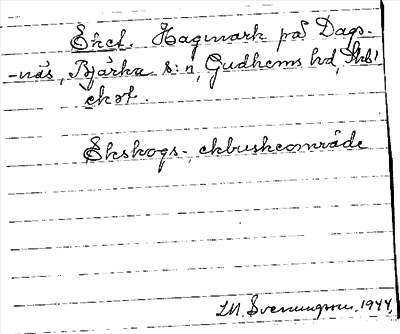 Eket. Hagmark på Dags-
-näs, Bjärka s:n, Gudhems hd, Skbl
ekət.
Ekskogs-, ekbuskeområde
M. Svenungsson, 1944,